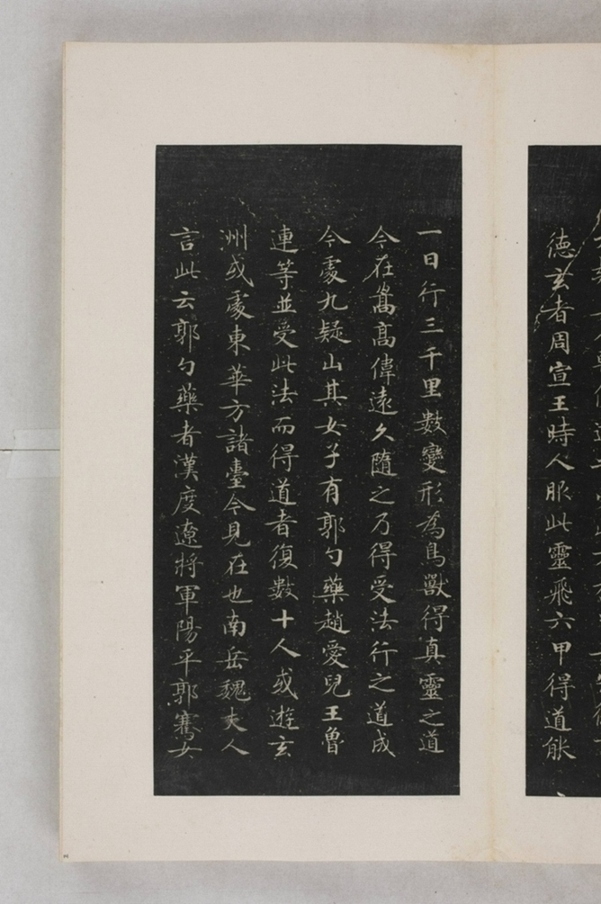 德玄者周宣王時人服此靈飛六甲得道能
一日行三千里數變形為鳥獸得真靈之道
今在嵩高偉遠久隨之乃得受法行之道成
今處九疑山其女子有郭勺藥趙愛兒王魯
連等並受此法而得道者復數十人或遊玄
洲或處東華方諸臺今見在也南岳魏夫人
言此云郭勺藥者漢度遼將軍陽平郭騫女